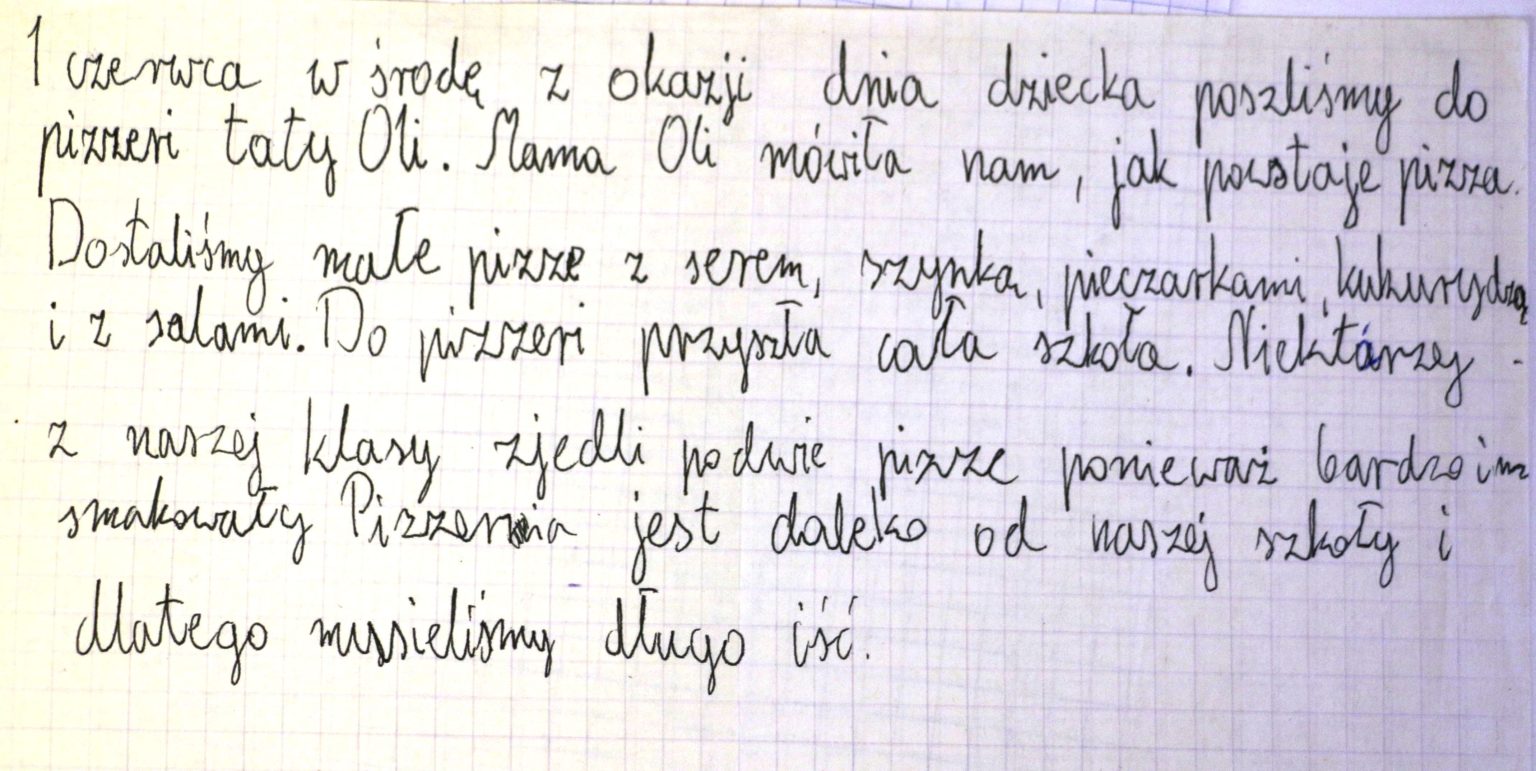 1 czerwca w środę z okazji dnia dziecka poszliśmy do
pizzeri taty Oli. Mama Oli mówiła nam, jak powstaje pizza.
Dostaliśmy małe pizze z serem, szynką, pieczarkami, kukurydzą
i z salami. Do pizzeri przyszła cała szkoła. Niektórzy
z naszej klasy zjedli po dwie pizze ponieważ bardzo im
smakowały Pizzernia jest daleko od naszej szkoły i
dlatego musieliśmy długo iść.